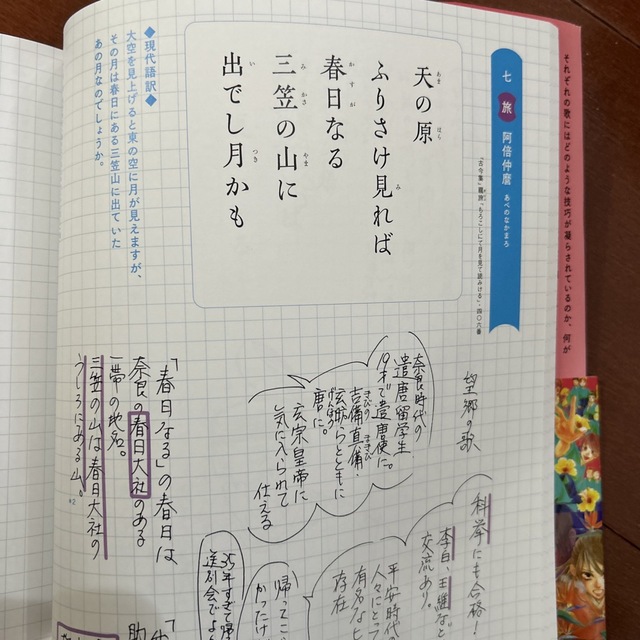 それぞれの歌にはどのような技巧が凝らされているのか、何が
七 旅 阿倍仲麿 あべのなかまろ
『古今集』羈旅「もろこしにて月を見て読みける」・四〇六番
天の原
ふりさけ見れば
春日なる
三笠の山に
出でし月かも
◆現代語訳◆
大空を見上げると東の空に月が見えますが、
その月は春日にある三笠山に出ていた
あの月なのでしょうか。
望郷の歌
奈良時代の
遣唐留学生
19才で遣唐使に。
吉備真備・
玄昉らとともに
唐に。
玄宗皇帝に
気に入られて
仕える
「春日なる」の春日は
奈良の春日大社のある
一帯の地名。
三笠の山は春日大社の
うしろにある山。
科挙にも合格!
李白、王維などと
交流あり。
平安時代の
人々にとって
有名な
存在
帰ってこ
かったけ
35年すぎて帰
送別会でよ